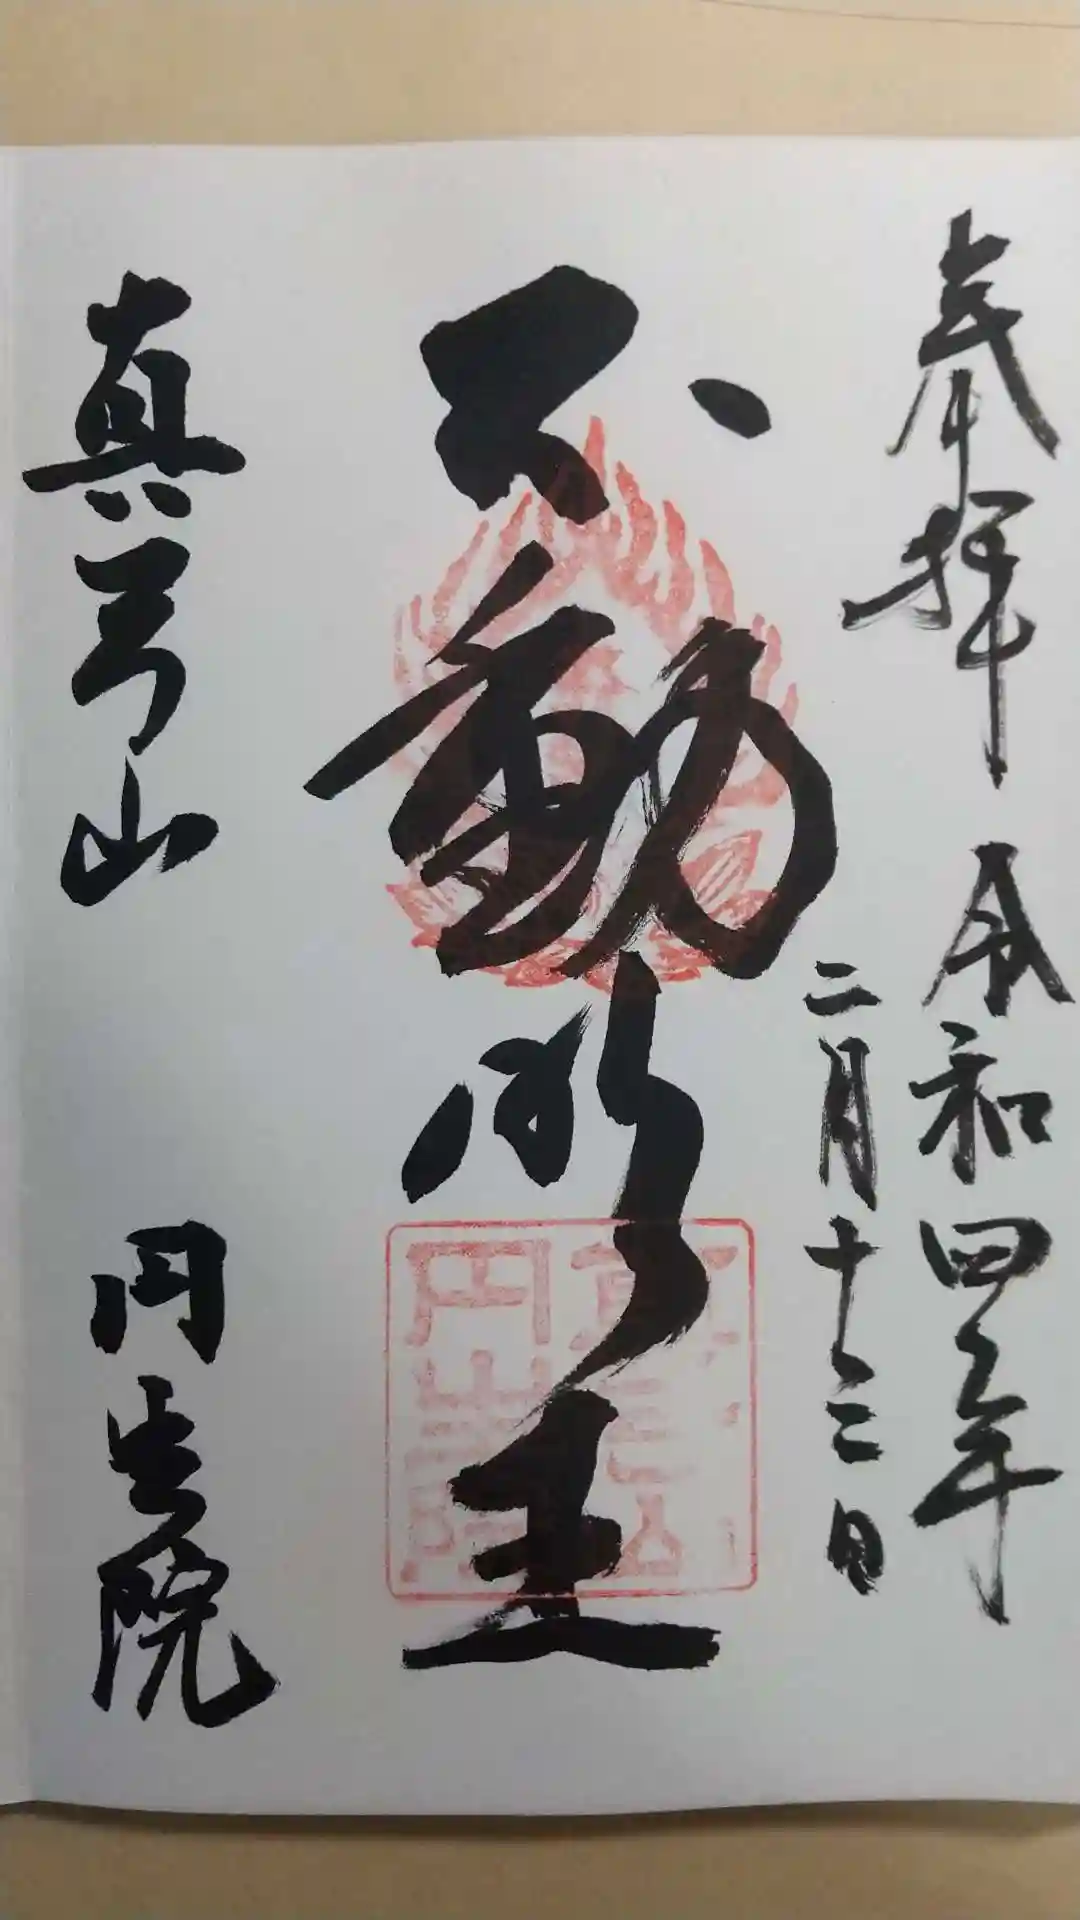 奉拝 令和四年
二月十三日
不動明王
真弓山 円生院
真弓山
円生院